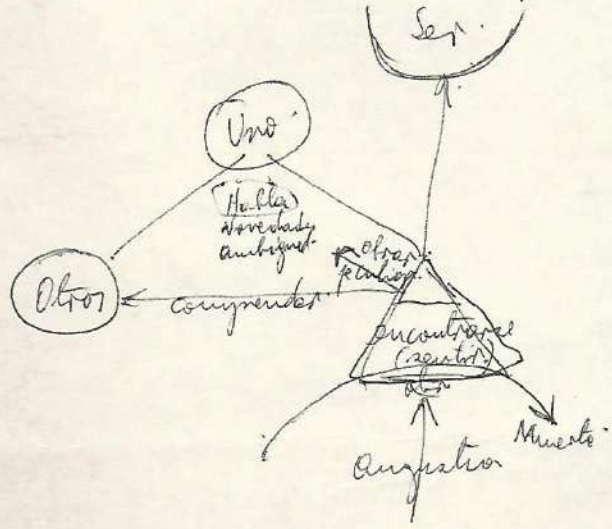 Ser.
Uno.
(Habla)
novedades
ambigued.
Otros
comprender.
obrar
encontrarse
(sentir)
Angustia
Muerte.